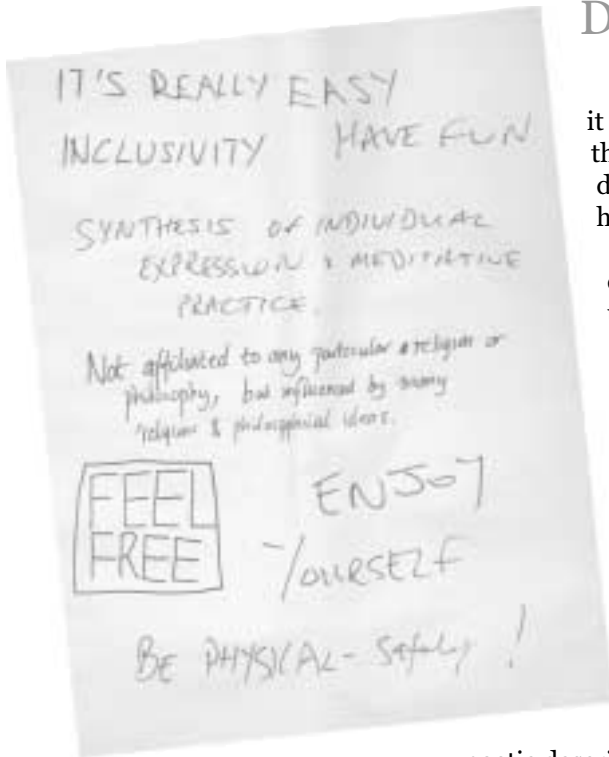 D
IT'S REALLY EASY
INCLUSIVITY HAVE FUN
SYNTHESIS OF INDIVIDUAL
EXPRESSION & MEDITATIVE
PRACTICE.
Not affiliated to any particular religion or
philosophy, but influenced by many
religious & philosophical ideas.
FEEL
FREE
ENJOY
YOURSELF
BE PHYSICAL - Safely!
it
th
d
h